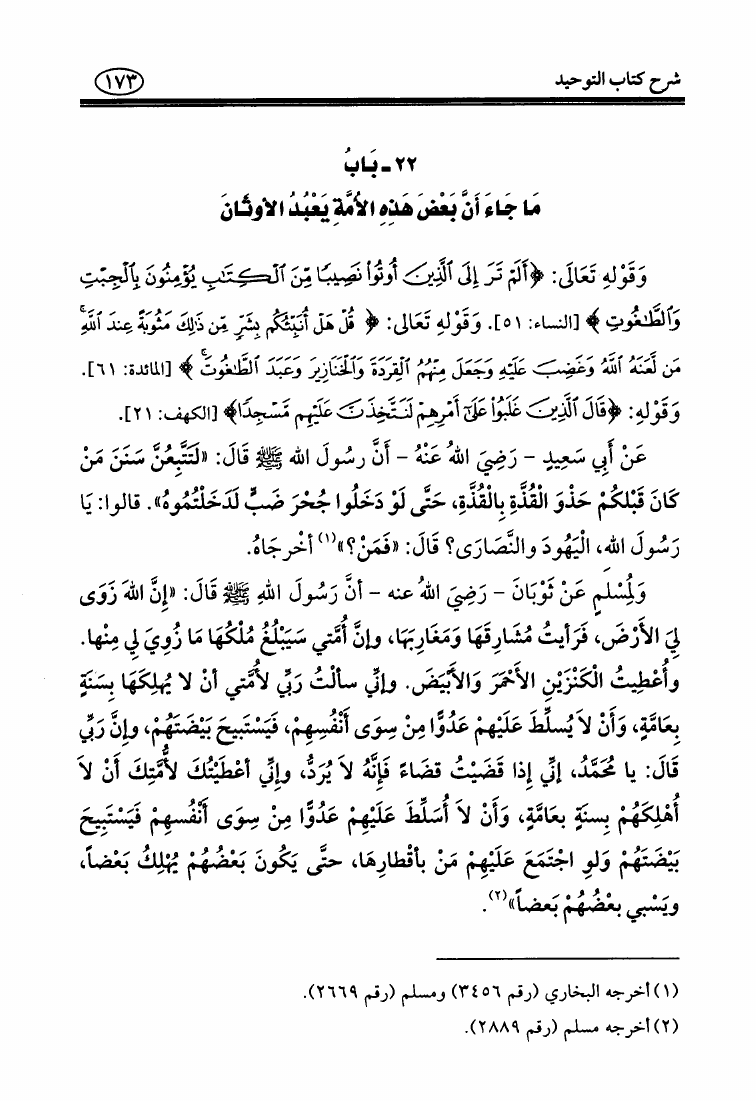 شرح كتاب التوحيد ١٧٣
٢٢ - بَابُ
مَا جَاءَ أَنَّ بَعْضَ هَذِهِ الأُمَّةِ يَعْبُدُ الأَوثَانَ
وَقَوْلِهِ تَعَالَى: ﴿أَلَمْ تَرَ إِلَى الَّذِينَ أُوتُوا نَصِيبًا مِّنَ الْكِتَابِ يُؤْمِنُونَ بِالْجِبْتِ
وَالطَّاغُوتِ﴾ [النساء: ٥١]. وَقَوْلِهِ تَعَالى: ﴿قُلْ هَلْ أُنَبِّئُكُم بِشَرٍّ مِّن ذَلِكَ مَثُوبَةً عِندَ اللَّهِ ۚ
مَن لَّعَنَهُ اللَّهُ وَغَضِبَ عَلَيْهِ وَجَعَلَ مِنْهُمُ الْقِرَدَةَ وَالْخَنَازِيرَ وَعَبَدَ الطَّاغُوتَ ۚ﴾ [المائدة: ٦١].
وَقَوْلِهِ: ﴿قَالَ الَّذِينَ غَلَبُوا عَلَىٰ أَمْرِهِمْ لَنَتَّخِذَنَّ عَلَيْهِم مَّسْجِدًا﴾ [الكهف: ٢١].
عَنْ أَبِي سَعِيدٍ - رَضِيَ اللهُ عَنْهُ - أَنَّ رسُولَ الله ﷺ قَالَ: «لَتَتَّبِعُنَّ سَنَنَ مَنْ
كَانَ قَبْلَكُمْ حَذْوَ الْقُذَّةِ بِالْقُذَّةِ، حَتَّى لَوْ دَخَلُوا جُحْرَ ضَبٍّ لَدَخَلْتُمُوهُ». قالوا: يَا
رَسُولَ الله، الْيَهُودَ والنَّصَارَى؟ قَالَ: «فَمَنْ؟»(١) أخْرجَاهُ.
وَلِمُسْلِمٍ عَنْ ثَوْبَانَ - رَضِيَ اللهُ عنه - أنَّ رَسُولَ اللهِ ﷺ قَالَ: «إِنَّ اللهَ زَوَى
لِيَ الأَرْضَ، فَرَأيتُ مُشَارِقَهَا وَمَغَارِبَهَا، وإنَّ أُمَّتي سَيَبْلُغُ مُلْكُهَا مَا زُوِيَ لي مِنْها.
وأُعْطِيتُ الْكَنْزَيْنِ الأحْمَرَ وَالأَبْيَضَ. وإنِّي سألْتُ رَبِّي لأُمَّتي أنْ لا يُهلِكَهَا بِسَنَةٍ
بِعَامَّةٍ، وَأَنْ لاَ يُسَلِّطَ عَلَيْهِمْ عَدُوًّا مِنْ سِوَى أَنْفُسِهِمْ، فَيَسْتَبِيحَ بَيْضَتَهُمْ، وإنَّ رَبِّي
قَالَ: يا مُحَمَّدُ، إنِّي إذا قَضَيْتُ قضَاءً فَإِنَّهُ لاَ يُرَدُّ، وإنِّي أعْطَيْتُكَ لأُمَّتِكَ أَنْ لاَ
أُهْلِكَهُمْ بِسَنةٍ بعَامَّةٍ، وَأَنْ لاَ أُسَلِّطَ عَلَيْهِمْ عَدُوًّا مِنْ سِوَى أَنْفُسهِمْ فَيَسْتَبِيحَ
بَيْضَتَهُمْ وَلوِ اجْتَمَعَ عَلَيْهِمْ مَنْ بأقْطارِهَا، حتَّى يَكُونَ بَعْضُهُمْ يُهْلِكُ بَعْضاً،
ويَسْبي بعْضُهُمْ بَعضاً»(٢).
(١) أخرجه البخاري (رقم ٣٤٥٦) ومسلم (رقم ٢٦٦٩).
(٢) أخرجه مسلم (رقم ٢٨٨٩).